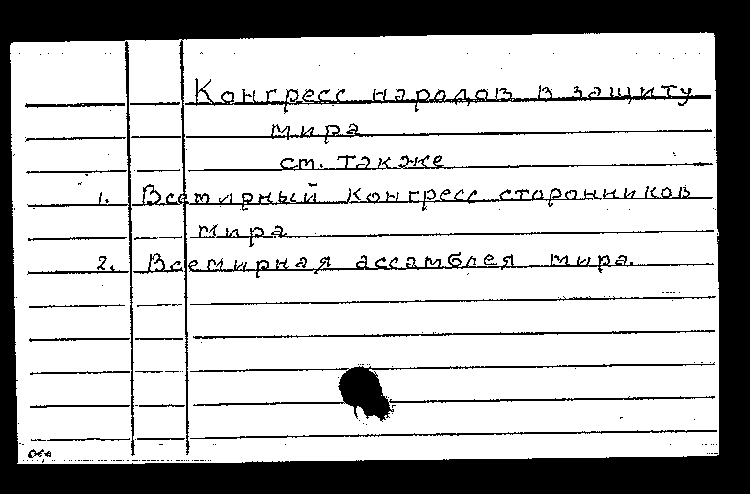 Конгресс народов в защиту
мира
см. также
1. Всемирный конгресс сторонников
мира
2. Всемирная ассамблея мира.